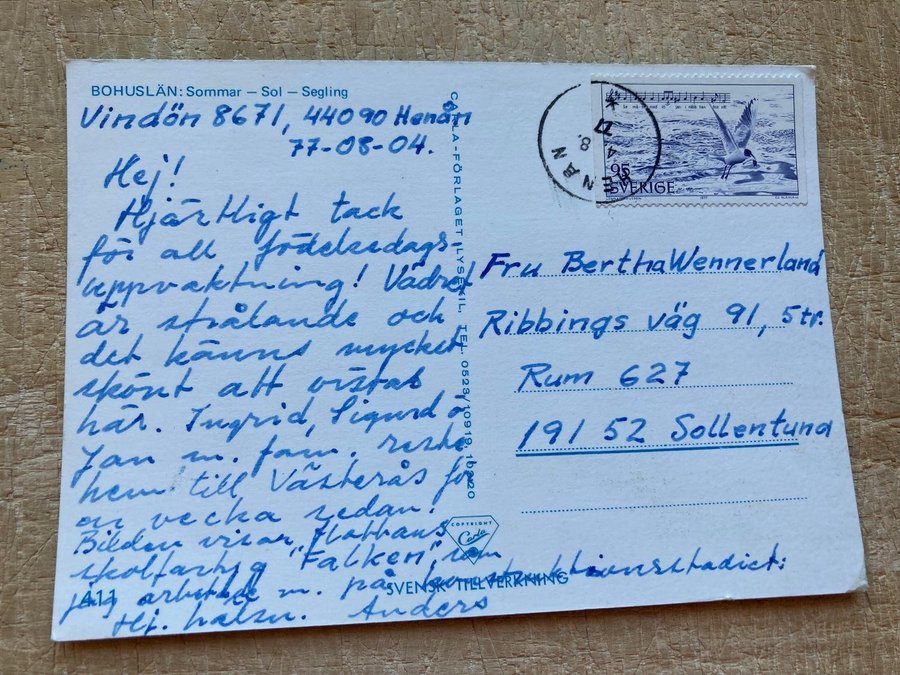 BOHUSLÄN: Sommar – Sol – Segling
Vindön 8671, 44090 Henån
77-08-04.
Hej!
Hjärtligt tack
för all födelsedags
uppvaktning! Vädret
är strålande och
det känns mycket
skönt att vistas
här. Ingrid, Sigurd o
Jan m. fam. reste
hem till Västerås för
en vecka sedan!
Bilden visar Flottans
skolfartyg "Falken", som
jag arbetade m. på konstruktionsstadiet:
Hj. hälsn. Anders
A11
CARLA-FÖRLAGET LYSEKIL, TEL. 0523/10919, 10920
COPYRIGHT
Carla
SVENSK TILLVERKNING
HENÅN
4 8. 77
95
SVERIGE
1977
Fru Bertha Wennerland
Ribbings väg 91, 5tr.
Rum 627
191 52 Sollentuna